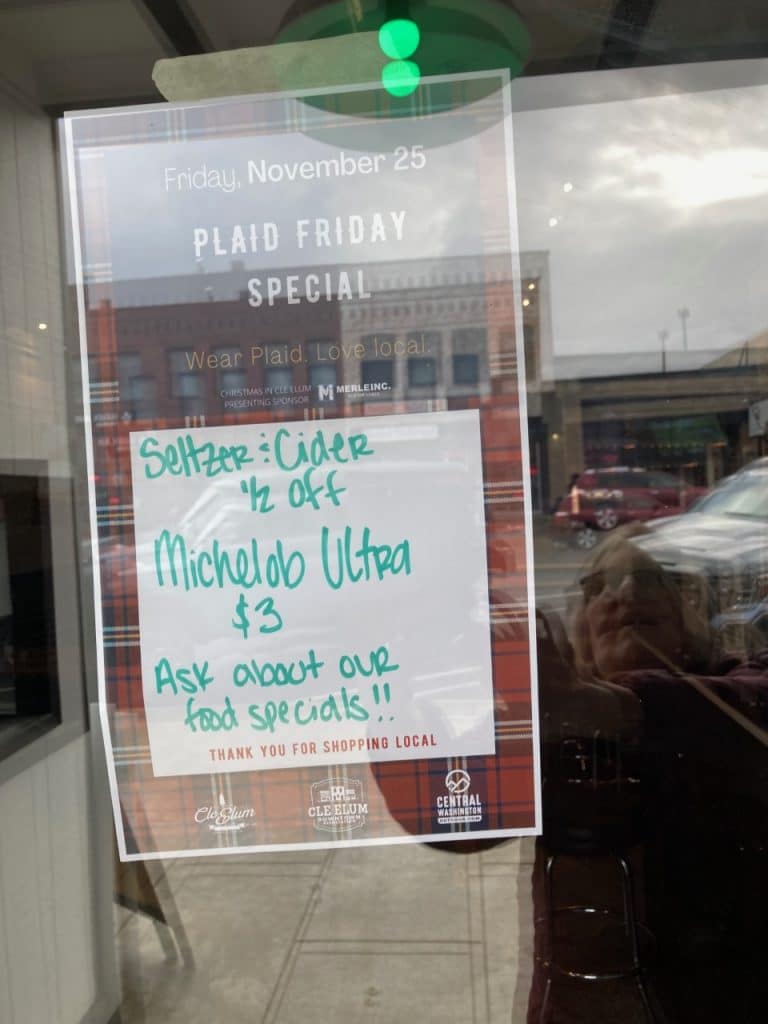 Friday, November 25
PLAID FRIDAY
SPECIAL
Wear Plaid. Love local.
CHRISTMAS IN CLE ELUM
PRESENTING SPONSOR
M MERLE INC.
Seltzer & Cider
1/2 off
Michelob Ultra
$3
Ask about our
food specials!!
THANK YOU FOR SHOPPING LOCAL
Cle Elum
CLE ELUM
DOWNTOWN
CENTRAL
WASHINGTON